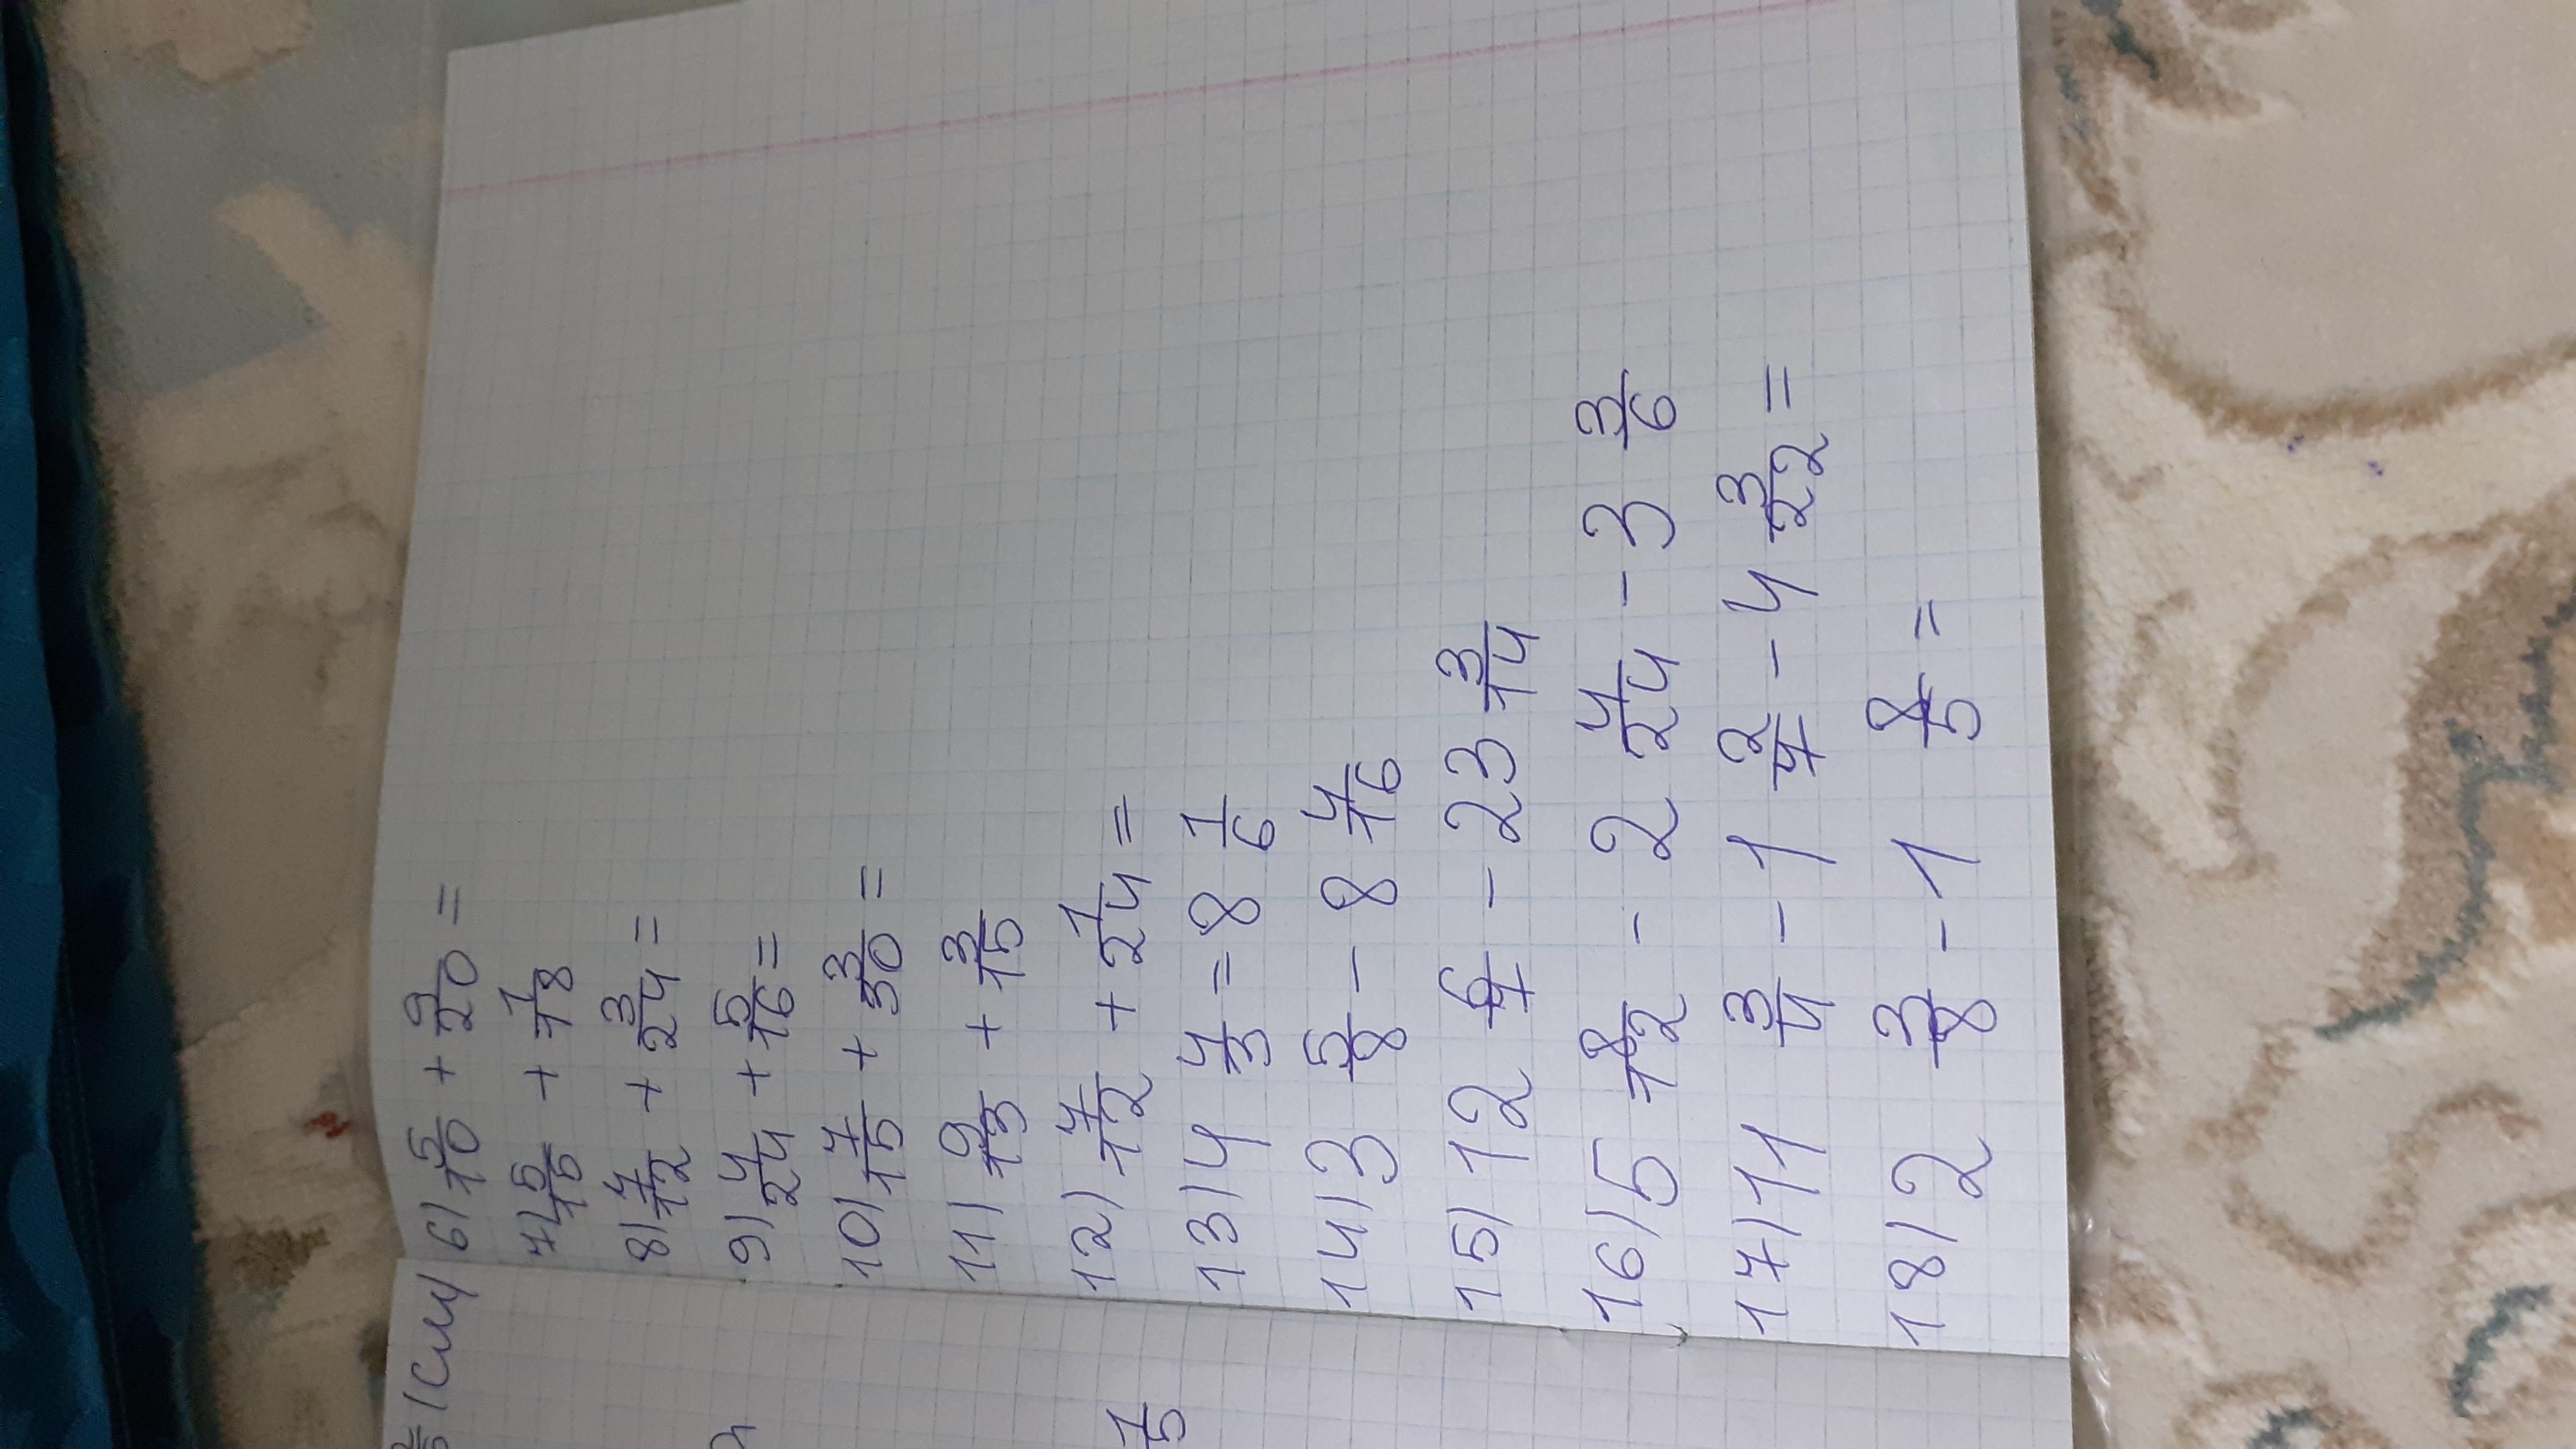 2/5 (см)
1/5
6) 5/10 + 9/20 =
7) 5/15 + 1/18
8) 7/12 + 3/24 =
9) 4/24 + 5/16 =
10) 7/15 + 3/30 =
11) 9/13 + 3/15
12) 7/12 + 1/24 =
13) 4 4/3 = 8 1/6
14) 3 5/8 - 8 4/16
15) 12 6/7 - 23 3/14
16) 5 8/12 - 2 4/24 - 3 3/6
17) 11 3/4 - 1 2/7 - 4 3/22 =
18) 2 3/8 - 1 8/5 =